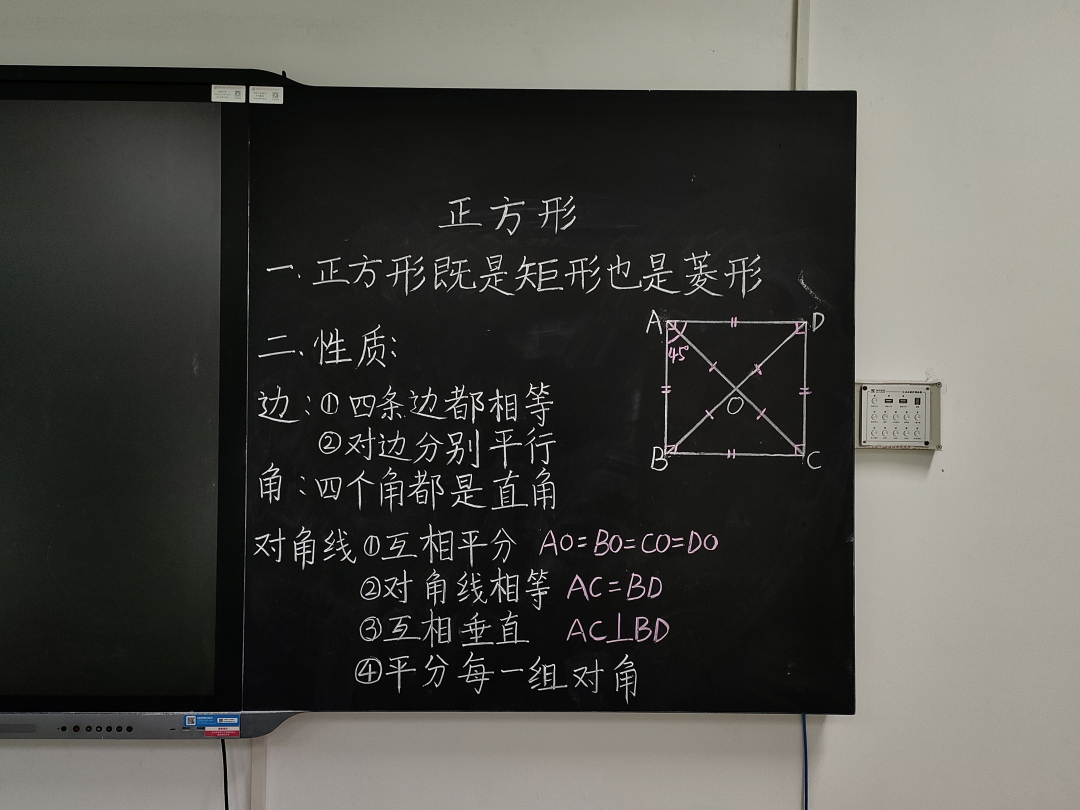 正方形
一.正方形既是矩形也是菱形
二.性质:
边:①四条边都相等
②对边分别平行
角:四个角都是直角
对角线①互相平分 AO=BO=CO=DO
②对角线相等 AC=BD
③互相垂直 AC⊥BD
④平分每一组对角
A D
45°
O
B C